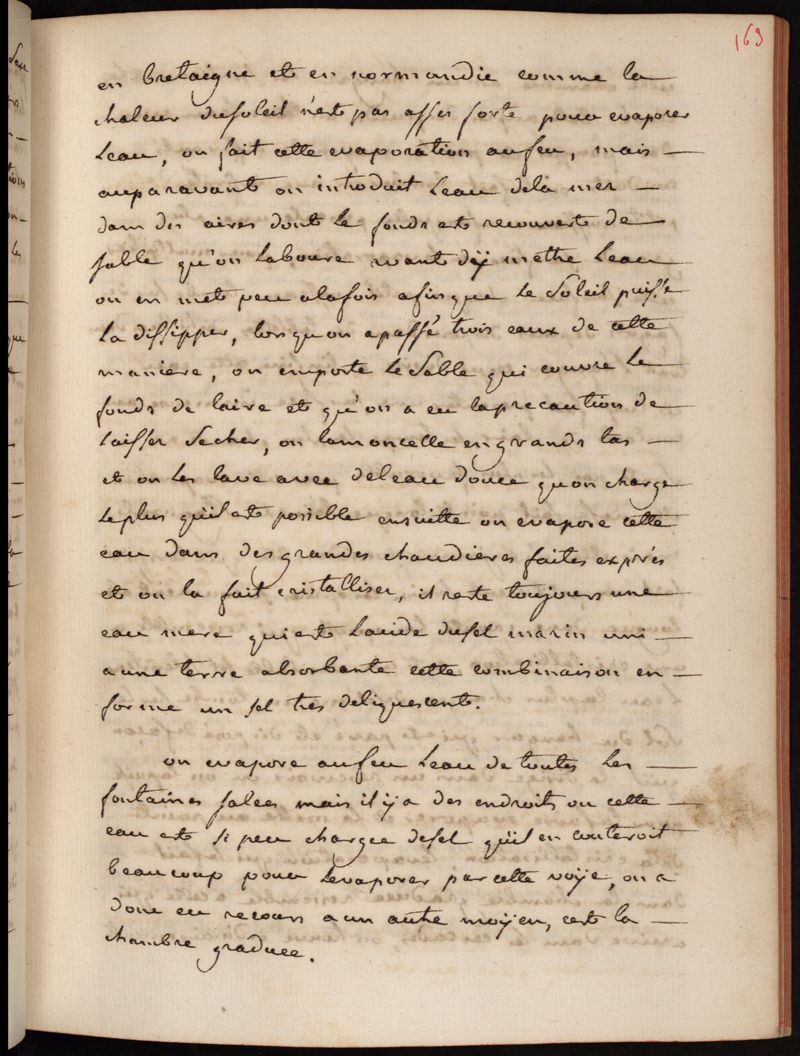 163
en bretaigne et en normandie comme la
chaleur du soleil n'est pas asses forte pour evaporer
leau, on fait cette evaporation au feu, mais
auparavant on introduit leau de la mer
dans des aires dont le fonds est recouvert de
sable qu'on laboure avant d'ÿ mettre leau
on en met peu a la fois afin que le soleil puisse
la dissipper, lorsqu'on a passé trois eaux de cette
maniere, on emporte le sable qui couvre le
fonds de laire et qu'on a eu la precaution de
laisser secher, on lamoncelle en grands tas
et on les lave avec de leau douce qu on charge
le plus qu'il est possible ensuitte on evapore cette
eau dans des grandes chaudieres faites exprés
et on la fait cristalliser, il reste toujours une
eau mere qui est lacide du sel marin uni
a une terre absorbante cette combinaison en
forme un sel tres deliquescent.
on evapore au feu leau de toutes les
fontaines salees mais il ÿ a des endroits ou cette
eau est si peu chargee de sel qu'il en couteroit
beaucoup pour levaporer par cette voÿe, on a
donc eu recours a un autre moÿen, cest la
chambre graduee.